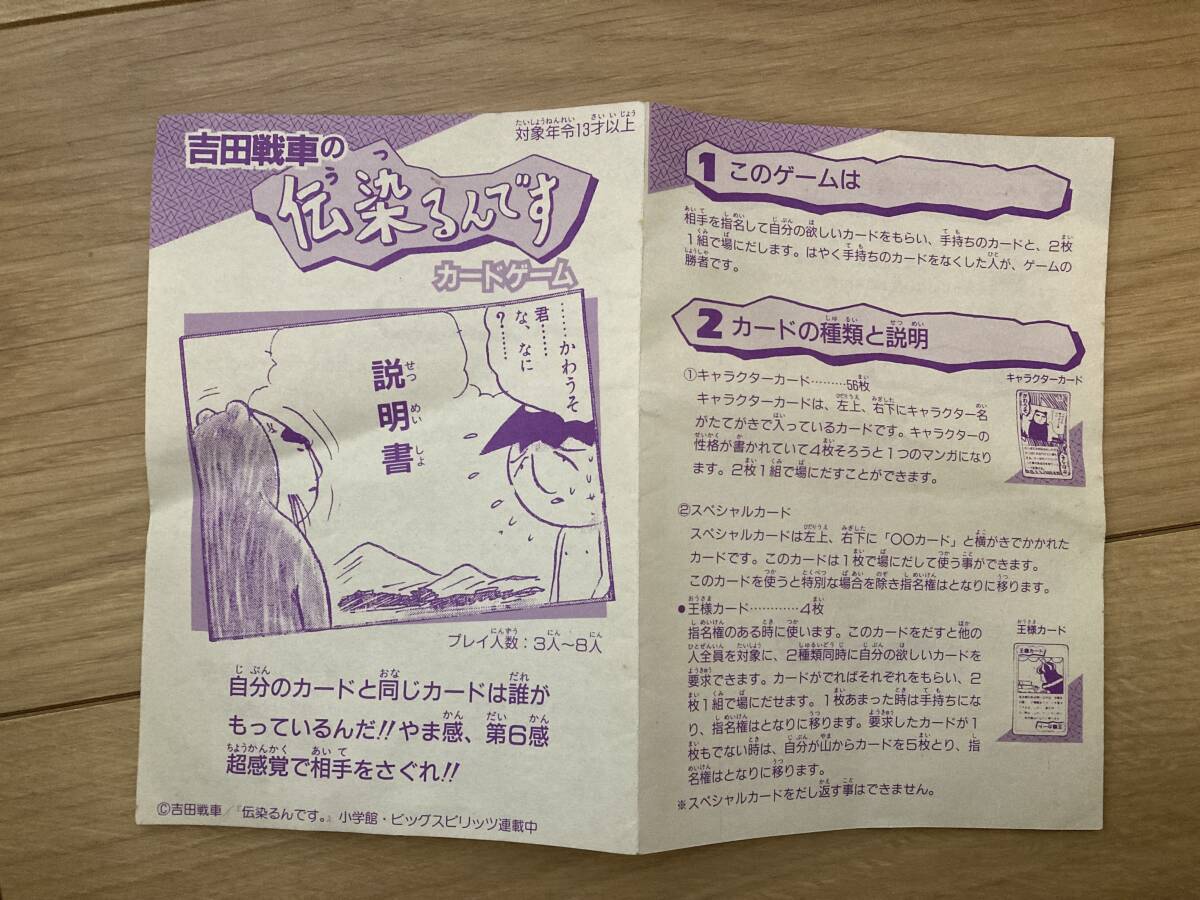 対象年令13才以上
吉田戦車の
伝染るんです
カードゲーム
……かわうそ
君………
な、なに
?………
説明書
プレイ人数:3人〜8人
自分のカードと同じカードは誰が
もっているんだ!!やま感、第6感
超感覚で相手をさぐれ!!
©吉田戦車/『伝染るんです。』小学館・ビッグスピリッツ連載中
1 このゲームは
相手を指名して自分の欲しいカードをもらい、手持ちのカードと、2枚
1組で場にだします。はやく手持ちのカードをなくした人が、ゲームの
勝者です。
2 カードの種類と説明
①キャラクターカード………56枚
キャラクターカード
キャラクターカードは、左上、右下にキャラクター名
がたてがきで入っているカードです。キャラクターの
性格が書かれていて4枚そろうと1つのマンガになり
ます。2枚1組で場にだすことができます。
②スペシャルカード
スペシャルカードは左上、右下に「〇〇カード」と横がきでかかれた
カードです。このカードは1枚で場にだして使う事ができます。
このカードを使うと特別な場合を除き指名権はとなりに移ります。
●王様カード…………4枚
王様カード
指名権のある時に使います。このカードをだすと他の
人全員を対象に、2種類同時に自分の欲しいカードを
要求できます。カードがでればそれぞれをもらい、2
枚1組で場にだせます。1枚あまった時は手持ちにな
り、指名権はとなりに移ります。要求したカードが1
枚もでない時は、自分が山からカードを5枚とり、指
名権はとなりに移ります。
※スペシャルカードをだし返す事はできません。
王様カード